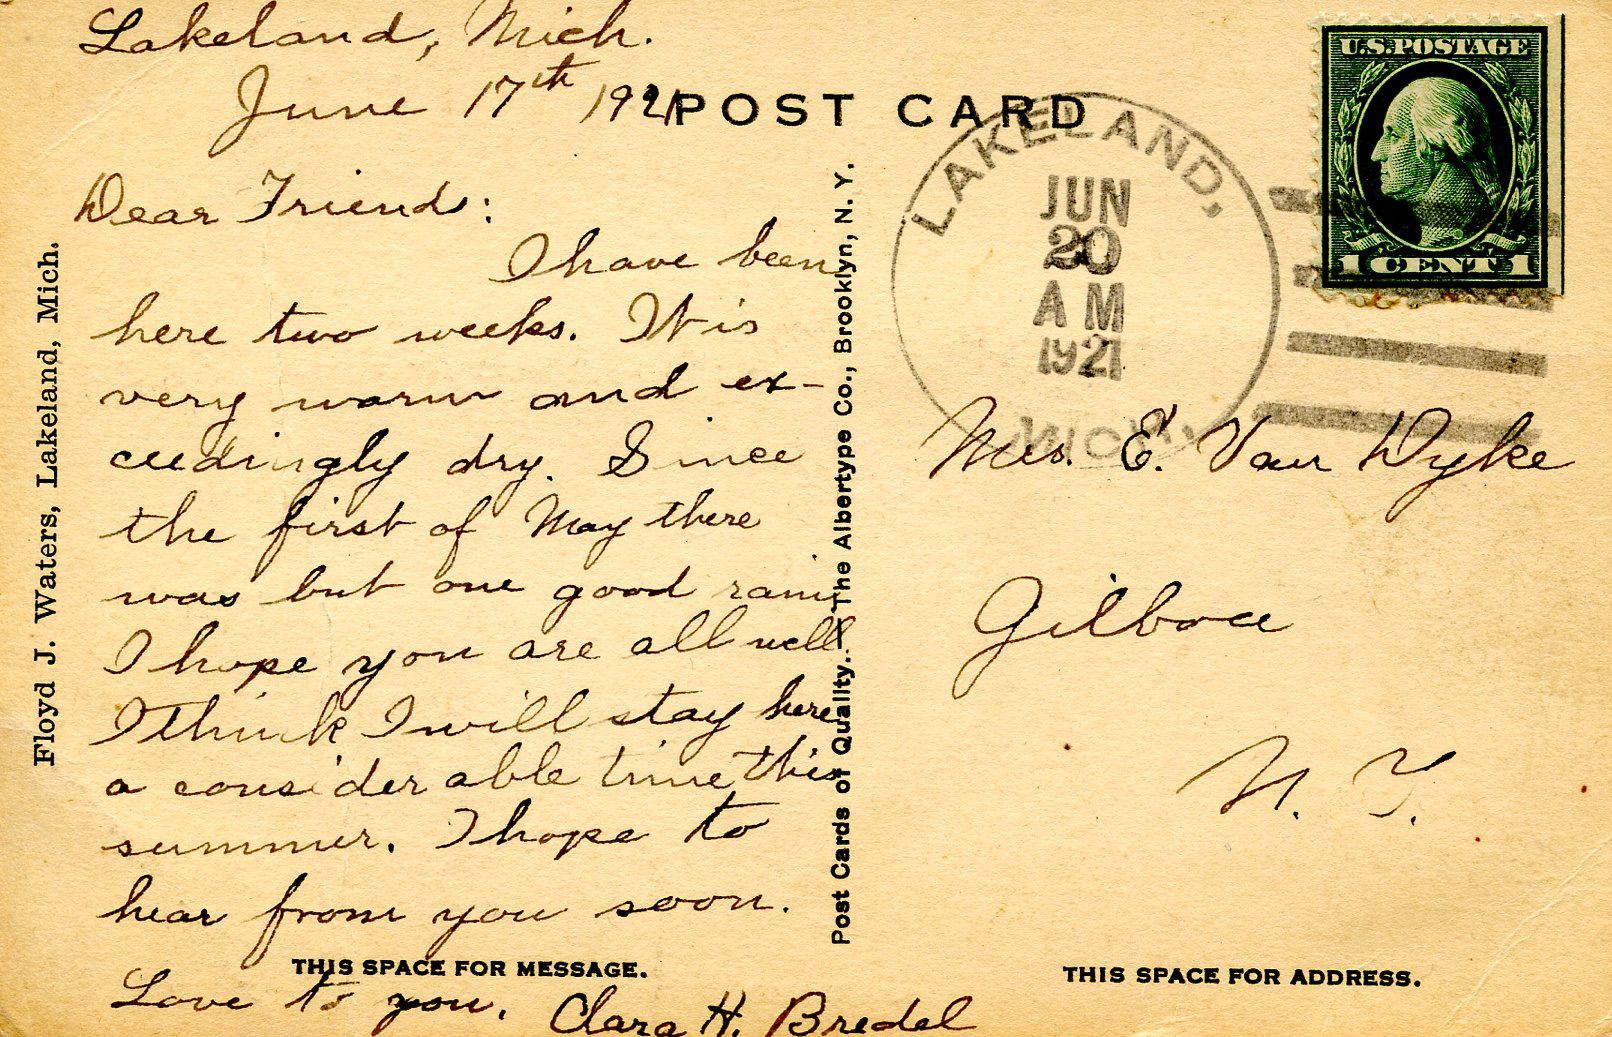 Lakeland, Mich.
June 17th 1921
Dear Friend:
I have been
here two weeks. It is
very warm and ex-
ceedingly dry. Since
the first of May there
was but one good rain.
I hope you are all well
I think I will stay here
a considerable time this
summer. I hope to
hear from you soon.
THIS SPACE FOR MESSAGE.
Love to you,
Clara H. Bredel
Floyd J. Waters, Lakeland, Mich.
Post Cards of Quality.—The Albertype Co., Brooklyn, N. Y.
POST CARD
LAKELAND,
JUN
20
AM
1921
MICH.
U.S. POSTAGE
1 CENT 1
Mrs. E. Van Dyke
Gilboa
N. Y.
THIS SPACE FOR ADDRESS.